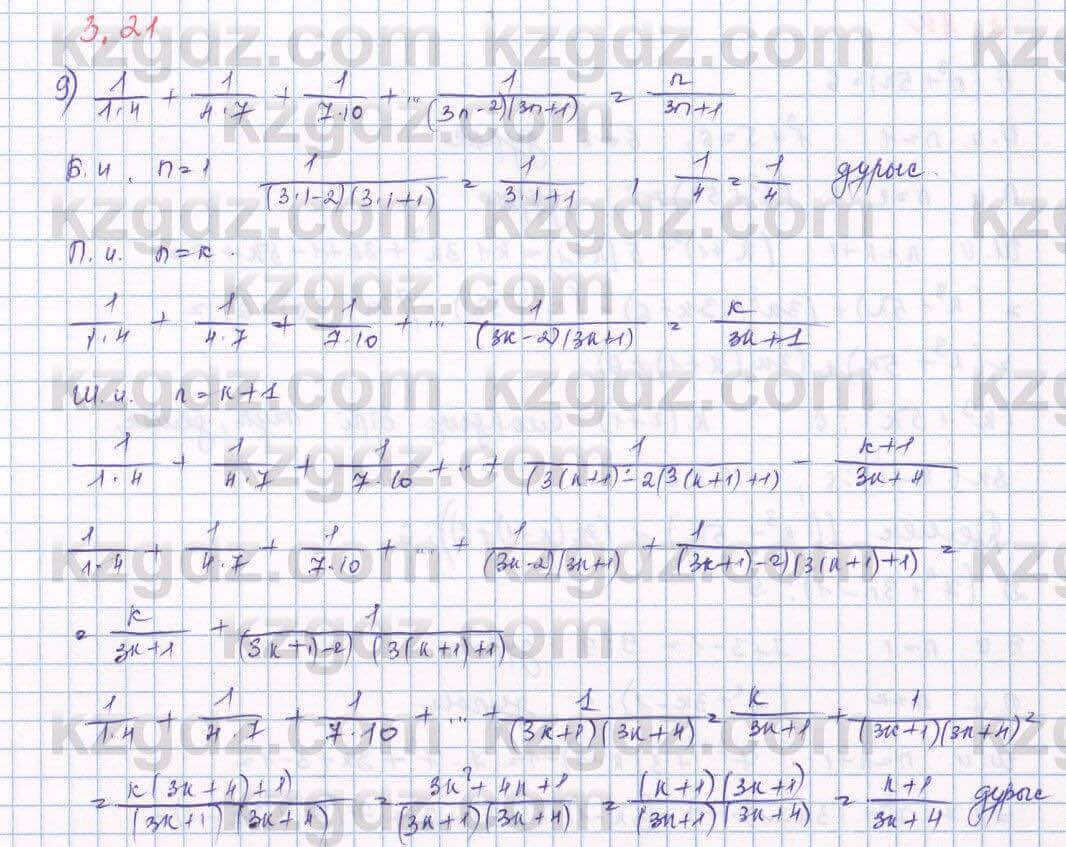 3.21
9) 1/(1·4) + 1/(4·7) + 1/(7·10) + ... 1/((3n-2)(3n+1)) = n/(3n+1)
Б.и. n=1 1/((3·1-2)(3·1+1)) = 1/(3·1+1) , 1/4 = 1/4 дұрыс.
П.и. n=k.
1/(1·4) + 1/(4·7) + 1/(7·10) + ... 1/((3k-2)(3k+1)) = k/(3k+1)
Ш.и. n=k+1
1/(1·4) + 1/(4·7) + 1/(7·10) + ... + 1/(3(k+1)-2(3(k+1)+1)) - (k+1)/(3k+4)
1/(1·4) + 1/(4·7) + 1/(7·10) + ... + 1/((3k-2)(3k+1)) + 1/((3k+1)-2)(3(k+1)+1) =
= k/(3k+1) + 1/((3k+1)-2)(3(k+1)+1)
1/(1·4) + 1/(4·7) + 1/(7·10) + ... + 1/((3k+1)(3k+4)) = k/(3k+1) + 1/((3k+1)(3k+4)) =
= (k(3k+4)+1)/((3k+1)(3k+4)) = (3k²+4k+1)/((3k+1)(3k+4)) = ((k+1)(3k+1))/((3k+1)(3k+4)) = (k+1)/(3k+4) дұрыс
kzgdz.com